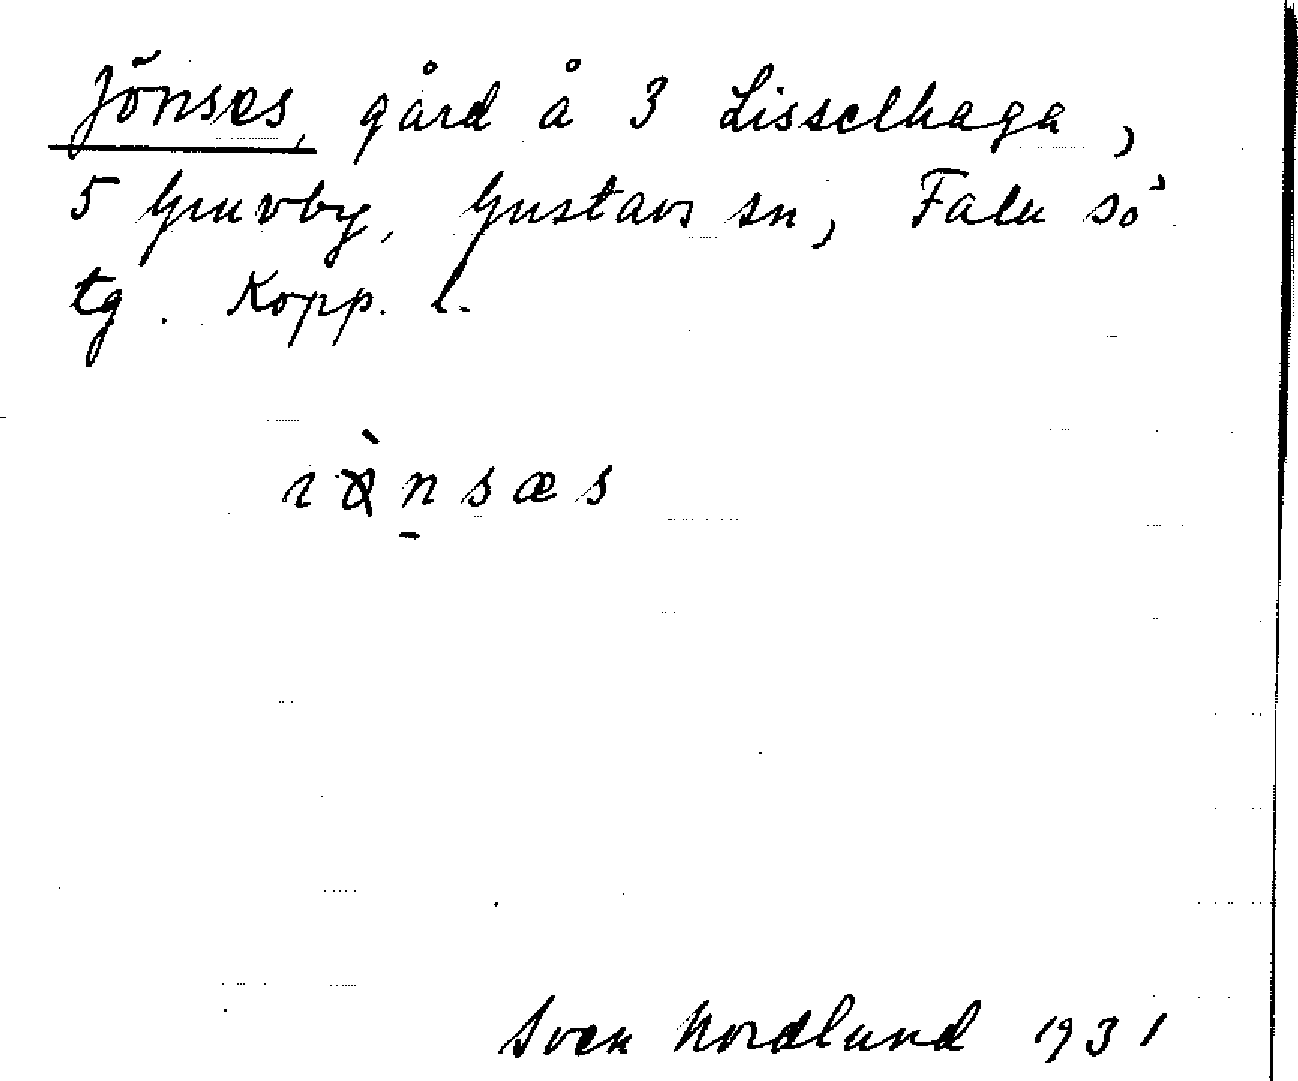 Jönses, gård å 3 Lisselhaga,
5 Gruvby, Gustavs sn, Falu sö
tg. Kopp. l.
ɪø̀n̠sæs
Sven Nordlund 1931